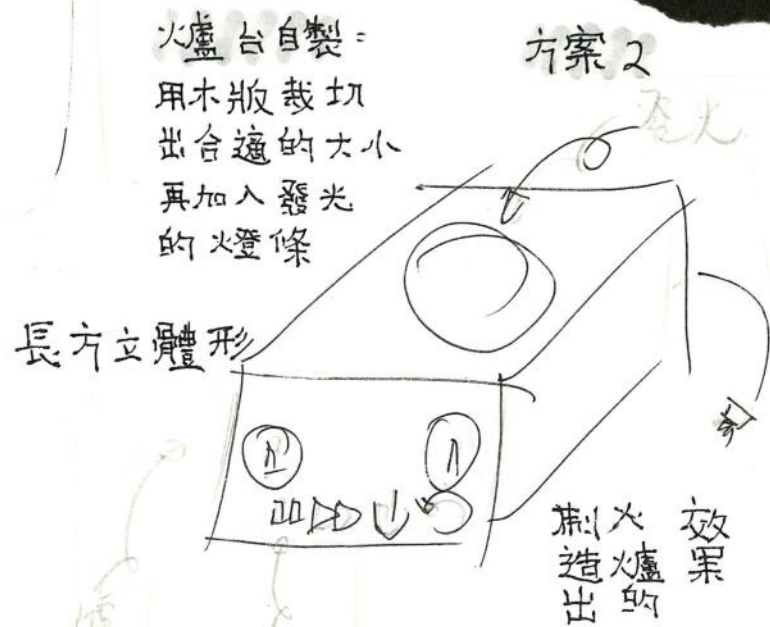 火爐台自製:
用木版裁切
出合適的大小
再加入發光
的燈條
方案2
長方立體形
製造出
火爐的
效果